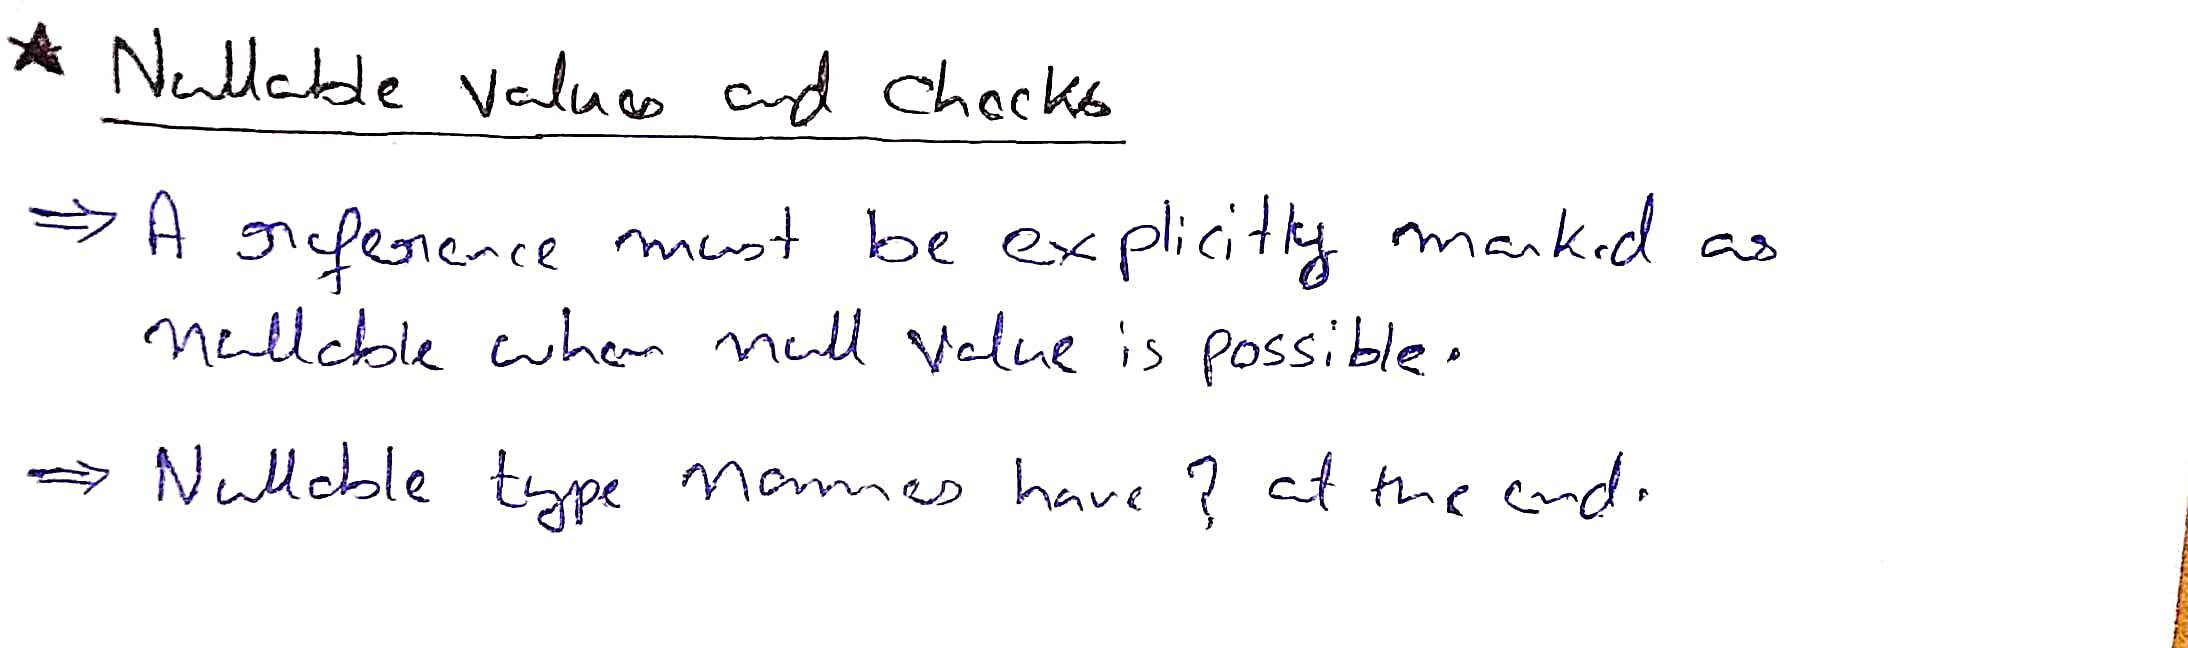 ★ Nullable values and checks
⇒ A reference must be explicitly marked as
nullable when null value is possible.
⇒ Nullable type names have ? at the end.